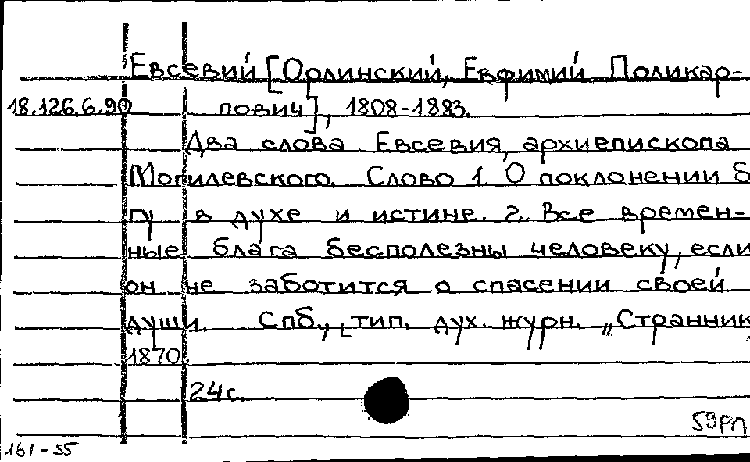 Евсевий [Орлинский, Евфимий Поликар-
18.126.6.90 пович], 1808-1883.
Два слова Евсевия, архиепископа
Могилевского. Слово 1. О поклонении б
гу в духе и истине. 2. Все времен-
ные блага бесполезны человеку, если
он не заботится о спасении своей
души. Спб., тип. дух. журн. „Странник
1870.
24 с.
59РП
161-55